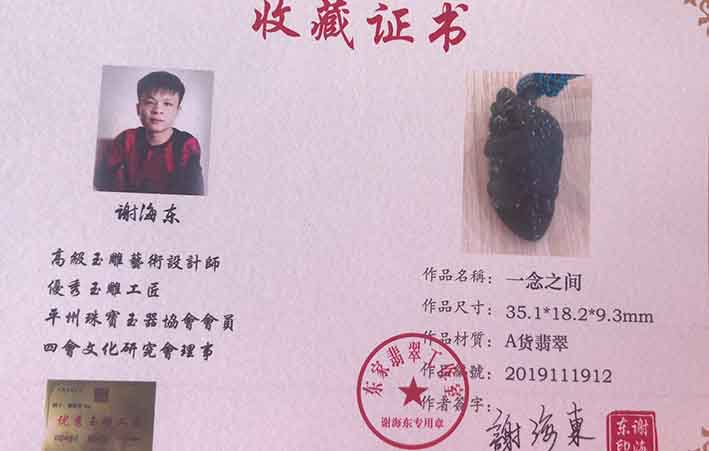 收藏证书
谢海东
高級玉雕藝術設計師
優秀玉雕工匠
平州珠寶玉器協會會員
四會文化研究會理事
作品名稱：一念之间
作品尺寸：35.1*18.2*9.3mm
作品材質：A货翡翠
作品編號：2019111912
作者簽字：
謝海東
东家翡翠工作室
谢海东专用章
谢海东印
优秀玉雕工匠